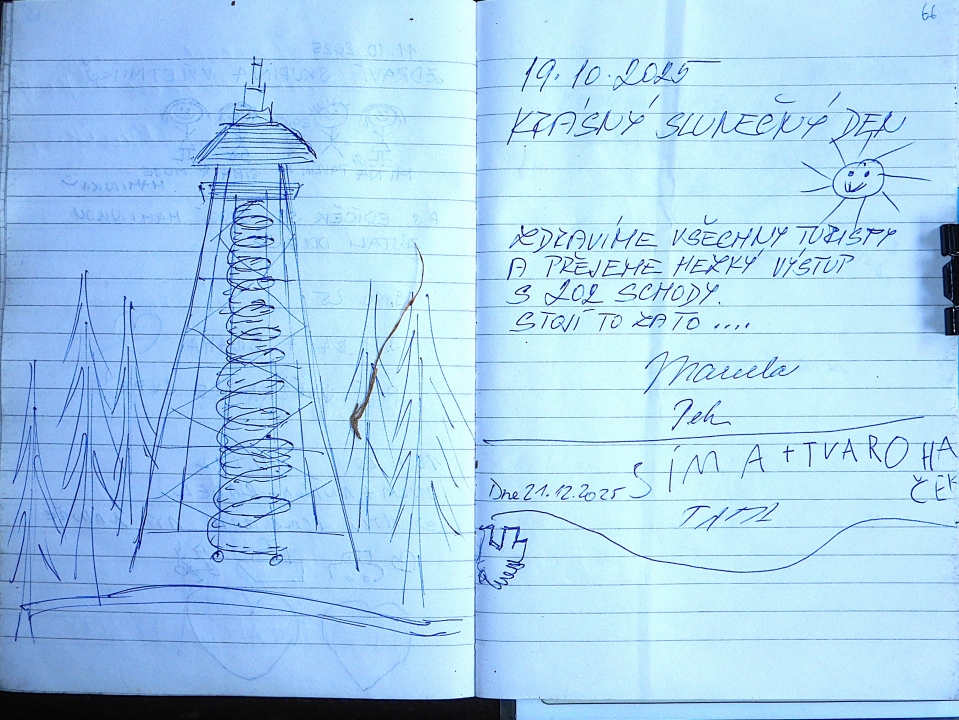 66
19.10.2025
KRÁSNÝ SLUNEČNÝ DEN
ZDRAVÍME VŠECHNY TURISTY
A PŘEJEME HEZKÝ VÝSTUP
S 202 SCHODY.
STOJÍ TO ZA TO ....
Marcela
Petr
SÍMA+TVAROHÁ
ČEK
Dne 21.12.2025
TATA